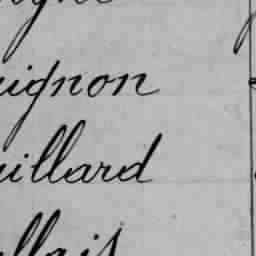 uignon
uillard
llais